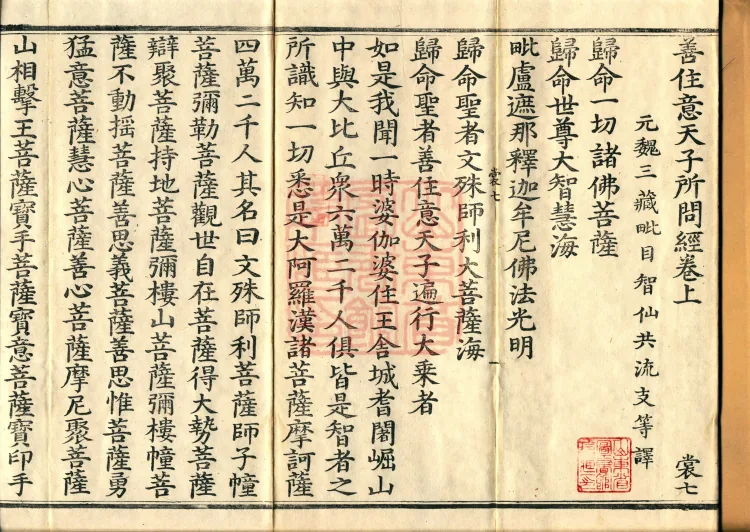 善住意天子所問經卷上
裳七
元魏三藏毗目智仙共流支等譯
歸命一切諸佛菩薩
歸命世尊大智慧海
毗盧遮那釋迦牟尼佛法光明
裳七
一
歸命聖者文殊師利大菩薩海
歸命聖者善住意天子遍行大乘者
如是我聞一時婆伽婆住王舍城耆闍崛山
中與大比丘衆六萬二千人俱皆是智者之
所識知一切悉是大阿羅漢諸菩薩摩訶薩
四萬二千人其名曰文殊師利菩薩師子幢
菩薩彌勒菩薩觀世自在菩薩得大勢菩薩
辯聚菩薩持地菩薩彌樓山菩薩彌樓幢菩
薩不動搖菩薩善思義菩薩善思惟菩薩勇
猛意菩薩慧心菩薩善心菩薩摩尼聚菩薩
山相擊王菩薩寶手菩薩寶意菩薩寶印手